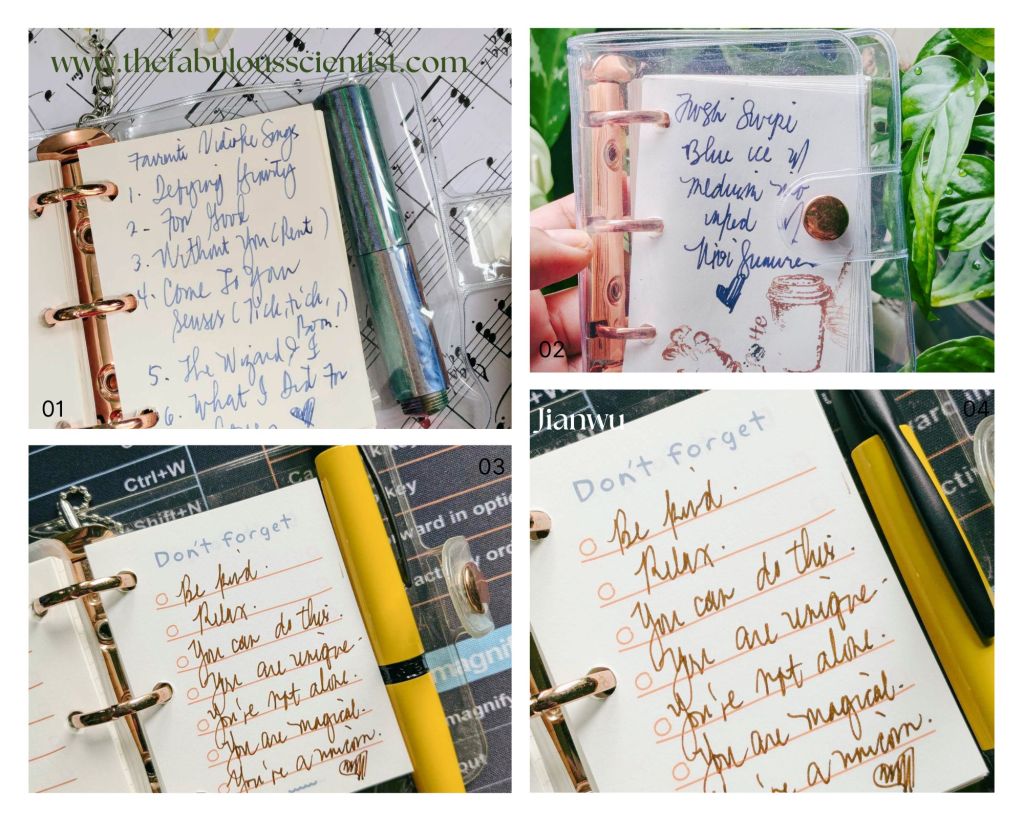 www.thefabulousscientist.com
Favorite Videoke Songs
1. Defying Gravity
2. For Good
3. Without You (Rent)
4. Come To Your
Senses (Tick, tick,
Boom!)
5. The Wizard & I
6. What I Did For
01
Swipe
Blue ice w/
medium nib
inked w/
02
Ctrl+W
Shift+N
key
ward in optio
magnif
magnify
out
03
Don't forget
Be kind.
Relax.
You can do this.
You are unique.
You're not alone.
You are magical.
You're a unicorn.
Jianwu
04
ward in
Don't forget
Be kind.
Relax.
You can do this.
You are unique.
You're not alone.
You are magical.
're a unicorn.